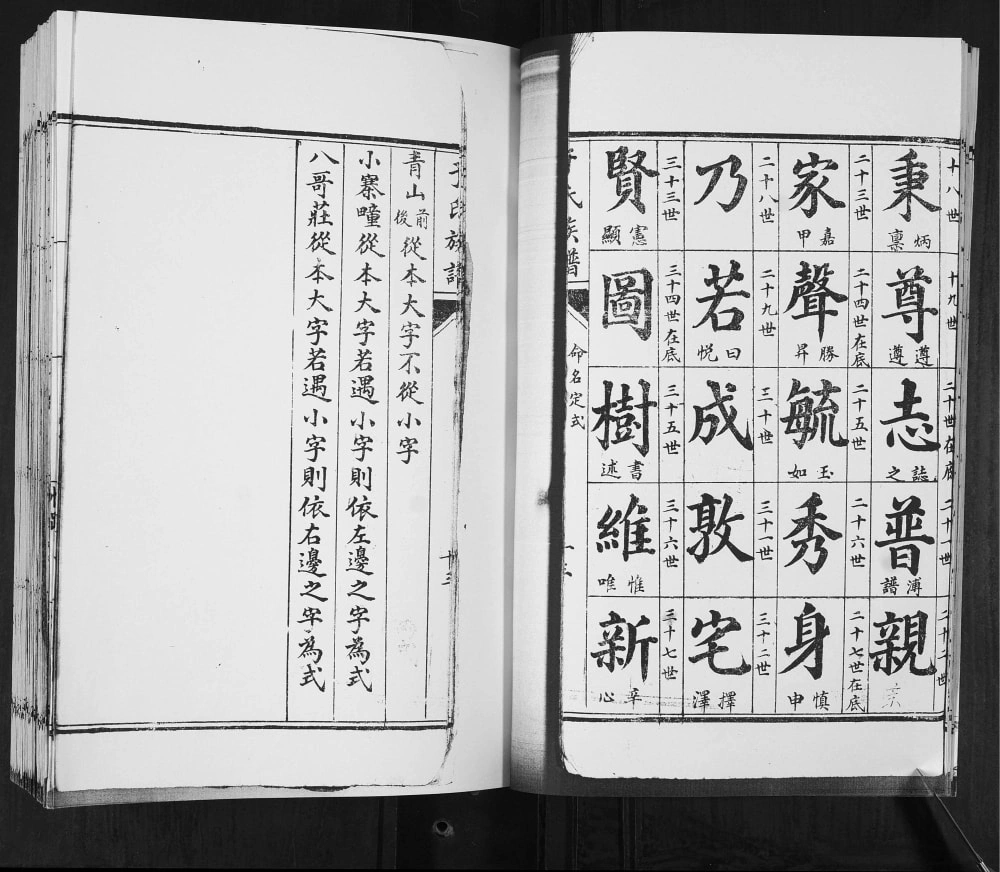 十八世 十九世 二十世在底 二十一世 二十二世
秉 炳稟 尊 遵遵 志 誌之 普 溥譜 親
二十三世 二十四世在底 二十五世 二十六世 二十七世在底
家 嘉甲 聲 勝昇 毓 玉如 秀 身 慎申
二十八世 二十九世 三十世 三十一世 三十二世
乃 若 曰悅 成 敦 宅 擇澤
三十三世 三十四世在底 三十五世 三十六世 三十七世
賢 憲顯 圖 樹 書述 維 惟唯 新 辛心
氏族譜 命名定式
于氏族譜 十三
青山前後從本大字不從小字
小寨疃從本大字若遇小字則依左邊之字為式
八哥莊從本大字若遇小字則依右邊之字為式